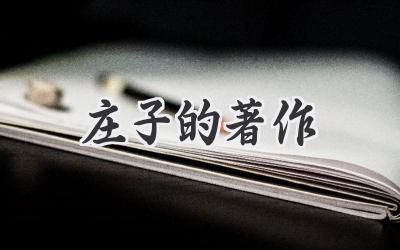 庄子的著作